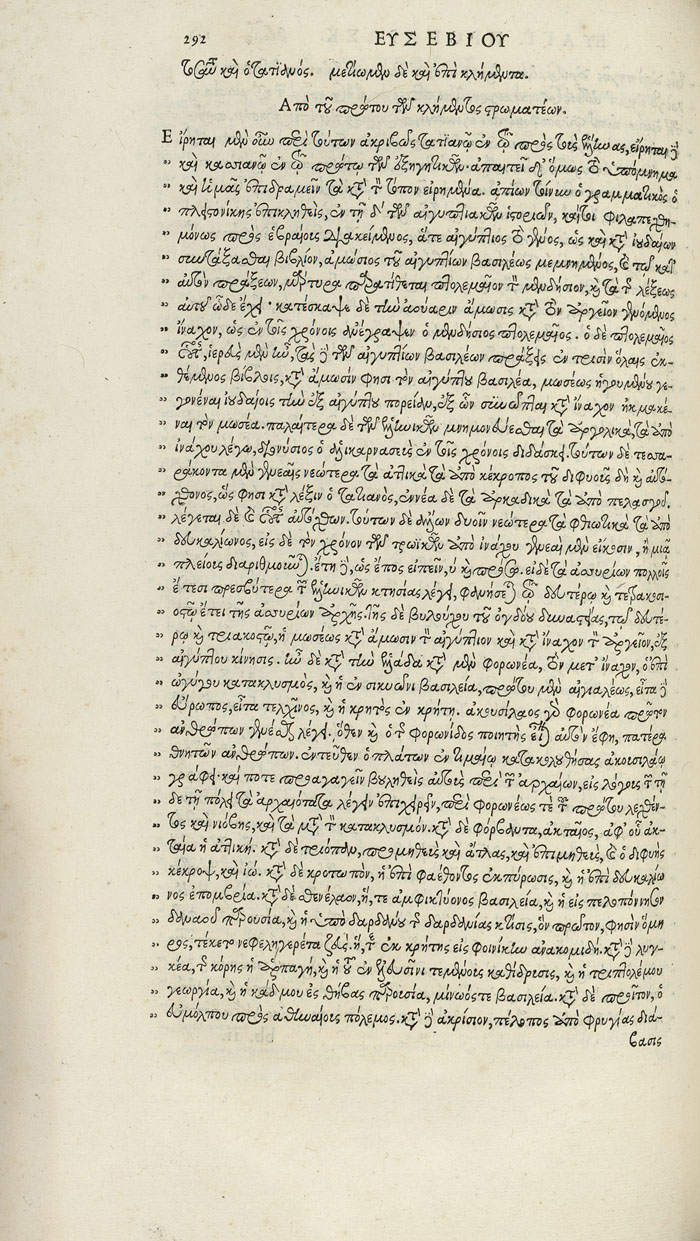 292 ΕΥΣΕΒΙΟΥ
ταῦτα καὶ ὁ τατιανός. μετίωμεν δὲ καὶ ἐπὶ κλήμεντα.
Απὸ τοῦ πρώτου τῶν κλήμεντος στρωματέων.
Εἴρηται μὲν οὖν περὶ τούτων ἀκριβῶς τατιανῷ ἐν τῷ πρὸς τοὺς ἕλληνας, εἴρηται ἢ
„ καὶ κασιανῷ ἐν τῷ πρώτῳ τῶν ἐξηγητικῶν· ἀπαιτεῖ δ' ὅμως τὸ ὑπόμνημα
„ καὶ ἡμᾶς ἐπιδραμεῖν τὰ κατὰ τὸν τόπον εἰρημένα. ἀπίων τοίνυν ὁ γραμματικὸς ὁ
„ πλειστονίκης ἐπικληθεὶς, ἐν τῇ δ' τῶν αἰγυπτιακῶν ἱστοριῶν, καίτοι φιλαπεχθη-
„ μόνως πρὸς ἑβραίους διακείμενος, ἅτε αἰγύπτιος τὸ γένος, ὡς καὶ κατὰ ἰουδαίων
„ συντάξασθαι βιβλίον, ἀμώσιος τοῦ αἰγυπτίων βασιλέως μεμνημένος, καὶ τῶν κατ'
„ αὐτὸν πράξεων, μάρτυρα παρατίθεται πτολεμαῖον τὸν μενδήσιον, καὶ τὰ τῆς λέξεως
„ αὐτοῦ ὧδε ἔχει· κατέσκαψε δὲ τὴν ἀουαριν ἄμωσις κατὰ τὸν ἀργεῖον γενόμενος
„ ἴναχον, ὡς ἐν τοῖς χρόνοις ἀνέγραψεν ὁ μενδήσιος πτολεμαῖος. ὁ δὲ πτολεμαῖος
„ οὗτος, ἱερεὺς μὲν ἦν, τὰς δὲ τῶν αἰγυπτίων βασιλέων πράξεις ἐν τρισὶν ὅλαις ἐκ-
„ θέμενος βίβλοις, κατὰ ἄμωσίν φησι τὸν αἰγύπτου βασιλέα, μωσέως ἡγουμένου γε-
„ γονέναι ἰουδαίοις τὴν ἐξ αἰγύπτου πορείαν, ἐξ ὧν συνῶπται κατὰ ἴναχον ἠκμακέ-
„ ναι τὸν μωσέα. παλαίτερα δὲ τῶν ἑλληνικῶν μνημονεύεσθαι τὰ ἀργολικὰ, τὰ ἀπὸ
„ ἰνάχου λέγω, διονύσιος ὁ ἁλικαρνασεὺς ἐν τοῖς χρόνοις διδάσκει. τούτων δὲ τεσσα-
„ ράκοντα μὲν γενεαῖς νεώτερα τὰ ἀττικὰ τὰ ἀπὸ κέκροπος τοῦ διφυοῦς δὴ καὶ αὐτό-
„ χθονος, ὥς φησι κατὰ λέξιν ὁ τατιανὸς, ἐννέα δὲ τὰ ἀρκαδικὰ τὰ ἀπὸ πελασγοῦ.
„ λέγεται δὲ καὶ οὗτος αὐτόχθων. τούτων δὲ ἄλλων δυοῖν νεώτερα τὰ φθιωτικὰ τὰ ἀπὸ
„ δευκαλίωνος, εἰς δὲ τὸν χρόνον τῶν τρωϊκῶν ἀπὸ ἰνάχου γενεαὶ μὲν εἴκοσιν, ἢ μιᾷ
„ πλείους διαριθμοῦνται. ἔτη δὲ, ὡς ἔπος εἰπεῖν, υ καὶ πρόσω. εἰ δὲ τὰ ἀσσυρίων πολλοῖς
„ ἔτεσι πρεσβύτερα τῶν ἑλληνικῶν κτησίας λέγει, φανήσεται τῷ δευτέρῳ καὶ τετρακοσι-
„ οστῷ ἔτει τῆς ἀσσυρίων ἀρχῆς. τῆς δὲ βυλούχου τοῦ ὀγδόου δυναστείας, τῷ δευτέ-
„ ρῳ καὶ τριακοστῷ, ἡ μωσέως κατὰ ἄμωσιν τὸν αἰγύπτιον καὶ κατὰ ἴναχον τὸν ἀργεῖον, ἐξ
„ αἰγύπτου κίνησις. ἦν δὲ κατὰ τὴν ἑλλάδα κατὰ μὲν φορωνέα, τὸν μετ' ἴναχον, ὁ ἐπὶ
„ ὠγύγου κατακλυσμὸς, καὶ ἡ ἐν σικυῶνι βασιλεία, πρώτου μὲν αἰγιαλέως, εἶτα δὲ
„ εὔρωπος, εἶτα τελχῖνος, καὶ ἡ κρητὸς ἐν κρήτῃ. ἀκουσίλαος γὰρ φορωνέα πρῶτον
„ ἀνθρώπων γενέσθαι λέγει. ὅθεν καὶ ὁ τῆς φορωνίδος ποιητὴς εἶναι αὐτὸν ἔφη, πατέρα
„ θνητῶν ἀνθρώπων. ἐντεῦθεν ὁ πλάτων ἐν τιμαίῳ κατακολουθήσας ἀκουσιλάῳ
„ γράφει· καί ποτε προαγαγεῖν βουληθεὶς αὐτοὺς περὶ τῶν ἀρχαίων, εἰς λόγους τῶν τῇ
„ δε τῇ πόλει τὰ ἀρχαιότατα λέγειν ἐπιχειρεῖν, περὶ φορωνέως τε τοῦ πρώτου λεχθέν-
„ τος καὶ νιόβης, καὶ τὰ μετὰ τὸν κατακλυσμόν. κατὰ δὲ φόρβαντα, ἀκταῖος, ἀφ' οὗ ἀκ-
„ ταία ἡ ἀττική. κατὰ δὲ τριόπαν, προμηθεὺς καὶ ἄτλας, καὶ ἐπιμηθεὺς, καὶ ὁ διφυὴς
„ κέκροψ, καὶ ἰώ. κατὰ δὲ κροτωπὸν, ἡ ἐπὶ φαέθοντος ἐκπύρωσις, καὶ ἡ ἐπὶ δευκαλίω
„ νος ἐπομβρία. κατὰ δὲ σθενέλαον, ἥ, τε ἀμφικτύονος βασιλεία, καὶ ἡ εἰς πελοπόννησον
„ δαναοῦ παρουσία, καὶ ἡ ὑπὸ δαρδάνου τῆς δαρδανίας κτίσις, ὃν πρῶτον, φησὶν ὅμη
„ ρος, τέκετο νεφεληγερέτα ζεύς. ἥ, τε ἐκ κρήτης εἰς φοινίκην ἀνακομιδή. κατὰ δὲ λυγ-
„ κέα, τῆς κόρης ἡ ἁρπαγὴ, καὶ ἡ τοῦ ἐν ἐλευσῖνι τεμένους καθίδρυσις, καὶ ἡ τριπτολέμου
„ γεωργία, καὶ ἡ κάδμου ἐς θήβας παρουσία, μίνωός τε βασιλεία. κατὰ δὲ προῖτον, ὁ
„ εὐμόλπου πρὸς ἀθηναίους πόλεμος. κατὰ δὲ ἀκρίσιον, πέλοπος ἀπὸ φρυγίας διά-
βασις